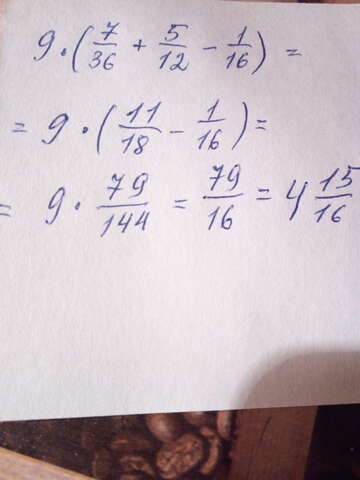 9 · (7/36 + 5/12 - 1/16) =
= 9 · (11/18 - 1/16) =
= 9 · 79/144 = 79/16 = 4 15/16